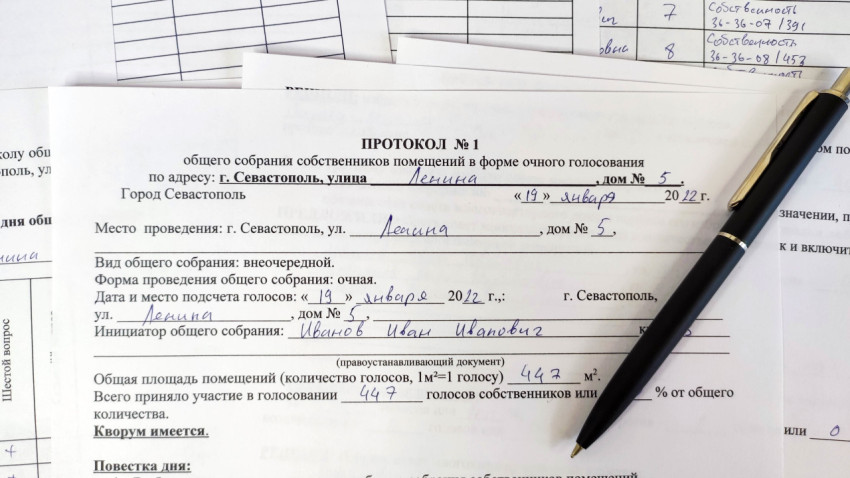 7
Собственность
36-36-07/391
8
Собственность
36-36-08/453
ПРОТОКОЛ № 1
общего собрания собственников помещений в форме очного голосования
по адресу: г. Севастополь, улица Ленина, дом № 5.
Город Севастополь «19» января 2022 г.
Место проведения: г. Севастополь, ул. Ленина, дом № 5,
Вид общего собрания: внеочередной.
Форма проведения общего собрания: очная.
Дата и место подсчета голосов: «19» января 2022 г.,: г. Севастополь,
ул. Ленина, дом № 5,
Инициатор общего собрания: Иванов Иван Иванович
(правоустанавливающий документ)
Общая площадь помещений (количество голосов, 1м²=1 голосу) 447 м².
Всего приняло участие в голосовании 447 голосов собственников или % от общего
количества.
Кворум имеется.
Повестка дня:
Шестой вопрос
значении, п
к и включит
или 0